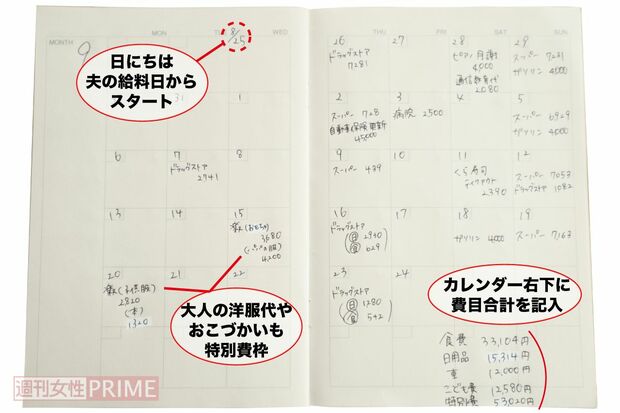 MONTH 9
WED
THU
FRI
SAT
SUN
8/25
日にちは
夫の給料日から
スタート
26
ドラッグストア
7281
27
28
ピアノ月謝
4,000
通信教育代
2,080
29
スーパー 7231
ガソリン 4,000
31
1
2
スーパー 728
自動車保険更新
45,000
3
病院 2500
4
5
スーパー 6929
ガソリン 4,000
6
7
ドラッグストア
2741
8
9
スーパー 439
10
11
くら寿司
テイクアウト
2,390
12
スーパー 7053
ドラッグストア 1082
13
14
15
楽(おもちゃ)
3680
(パパの服)
4,200
16
ドラッグストア
日 2940
食 629
17
18
ガソリン 4,000
19
スーパー 7163
20
楽(子供服)
2820
(本)
1320
21
22
23
ドラッグストア
日 1280
食 542
24
大人の洋服代や
おこづかいも
特別費枠
カレンダー右下に
費目合計を記入
食費 33,104円
日用品 15,314円
車 12,000円
こども費 12,580円
特別費 53,020円
週刊女性PRIME